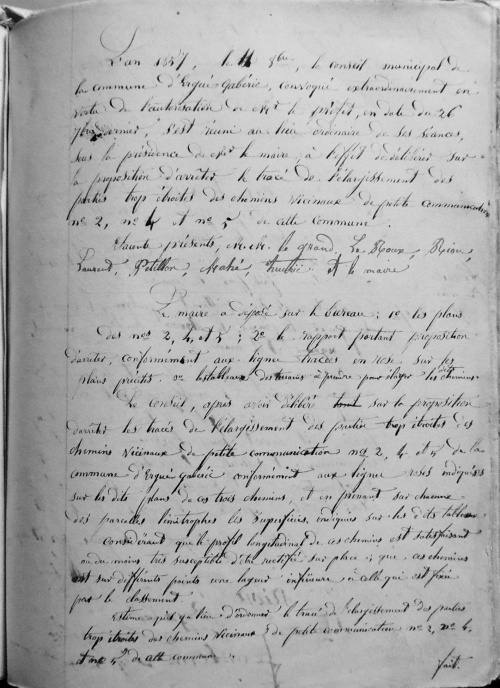 L'an 1857, le 11 8bre, le conseil municipal de
la commune d'Ergué-Gabéric, convoqué extraordinairement en
vertu de l'autorisation de Mr le préfet, en date du 26
7bre dernier, s'est réuni au lieu ordinaire de ses séances,
sous la présidence de Mr le maire, à l'effet de délibérer sur
la proposition d'arrêter le tracé de l'élargissement des
parties trop étroites des chemins vicinaux de petite communication
nos 2, no 4 et no 5 de cette commune.
Etaient présents, M.M. le grand, Le Roux, Riou,
Laurent, Petillon, Mahé, et le maire
Le maire a déposé sur le bureau : 1o les plans
des nos 2, 4, et 5 ; 2o le rapport portant proposition
d'arrêter, conformément aux lignes tracées en rose sur les
plans précités. 3o les tableaux des terrains à prendre pour élargir les dits chemins
Le conseil, après avoir délibéré tout sur la proposition
d'arrêter les tracés de l'élargissement des parties trop étroites des
chemins vicinaux de petite communication nos 2, 4 et 5 de la
commune d'Ergué-Gabéric conformément aux lignes roses indiquées
sur les dits plans de ces trois chemins, et en prenant sur chacune
des parcelles limitrophes les superficies indiquées sur les dits tableaux
Considérant que le profil longitudinal de ces chemins est satisfaisant
ou du moins très susceptible d'être rectifié sur place ; que ces chemins
ont sur différents points une largeur inférieure à celle qui est fixée
par le classement
Estime qu'il y a lieu d'ordonner le tracé de l'élargissement des parties
trop étroites des chemins vicinaux de petite communication no 2, no 4,
et no 5 de cette commune.
fait.